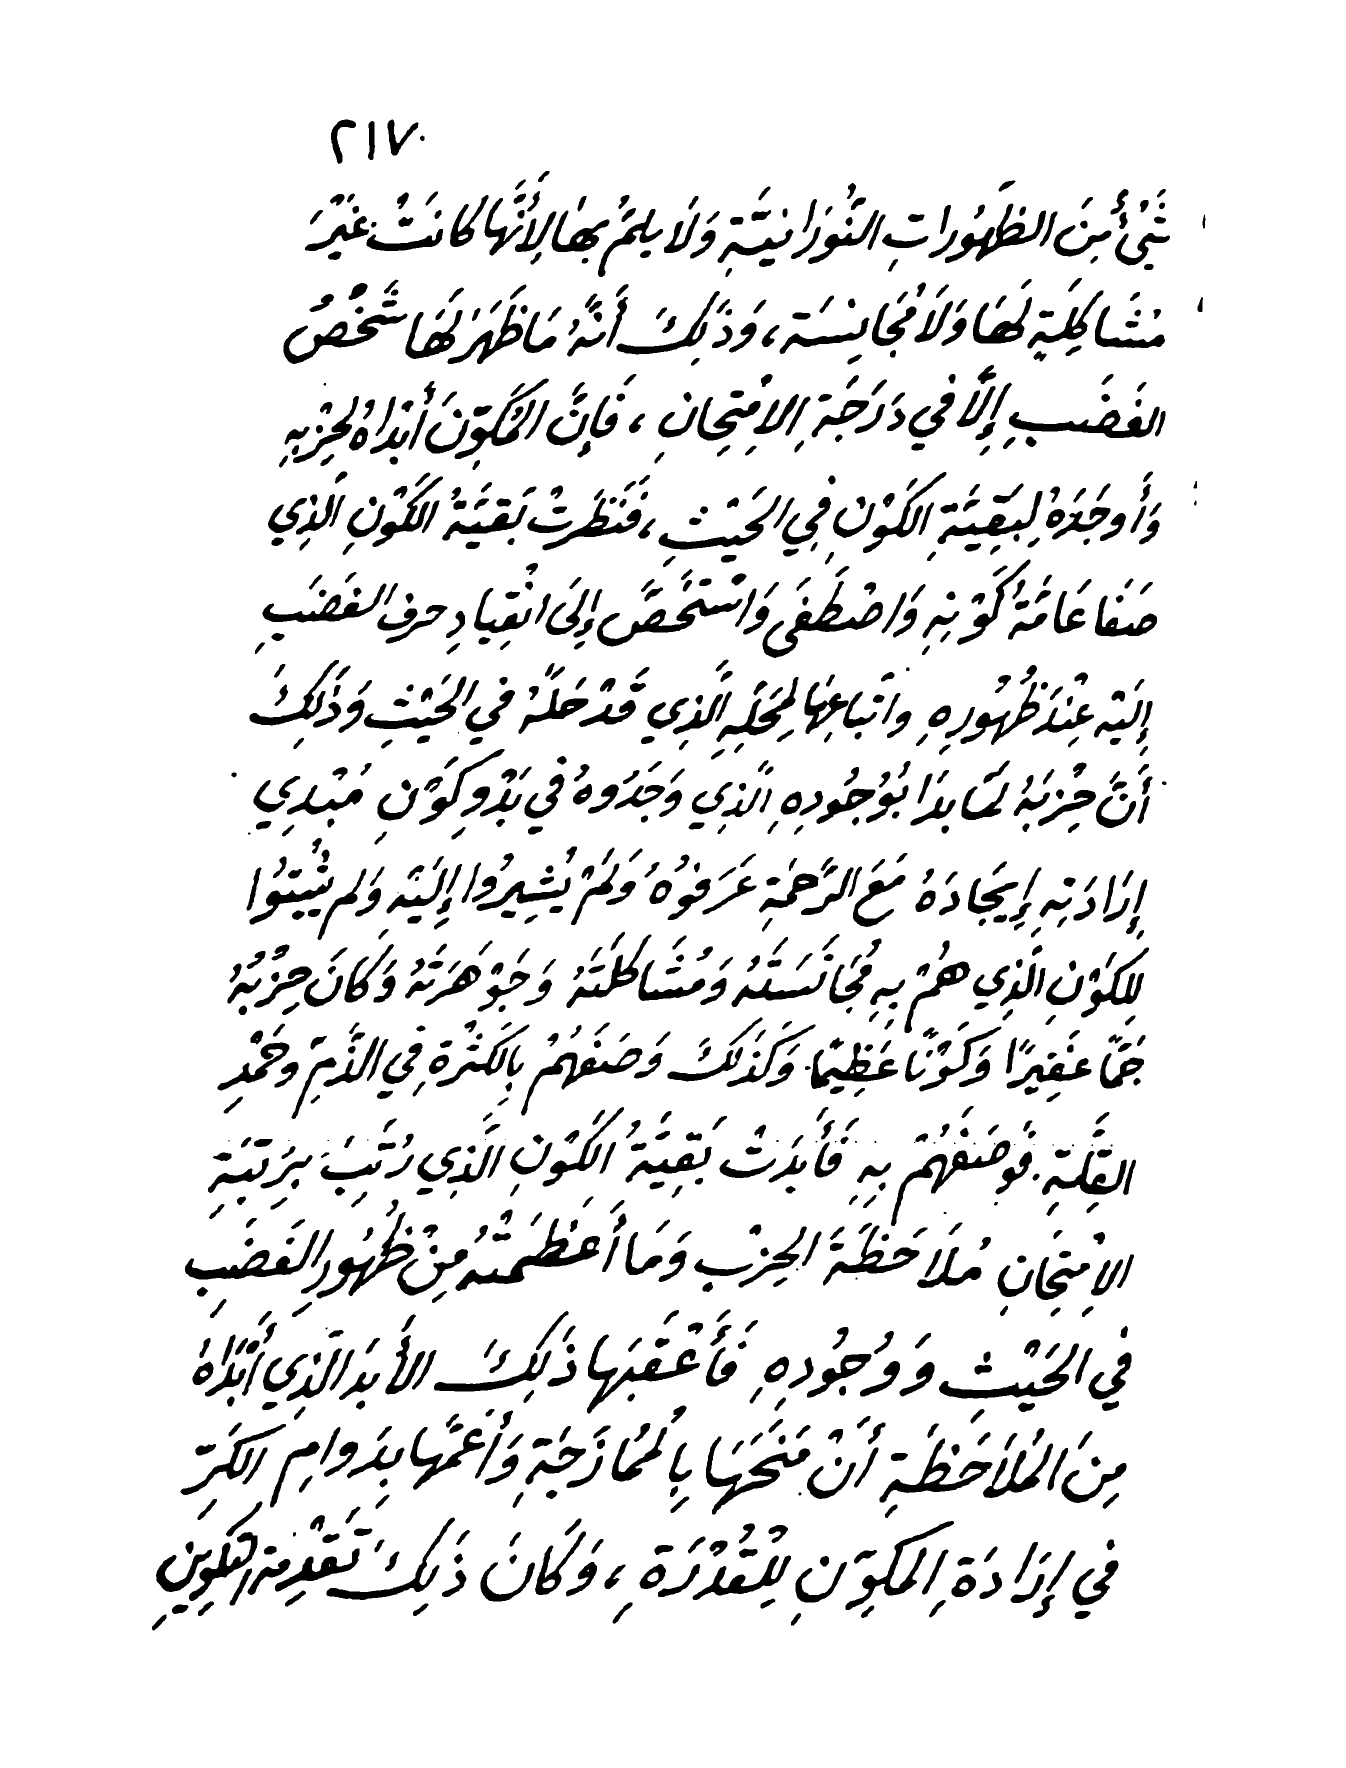 ٢١٧
شَيْءٌ مِنَ الظَّهُورَاتِ النُّورَانِيَّةِ وَلَا يلمُّ بِهَا لِأَنَّهَا كَانَتْ غَيْرَ
مُشَاكِلَةٍ لَهَا وَلَا مُجَانِسَة، وَذَلِكَ أَنَّهُ مَا ظَهَرَ لَهَا شَخْصُ
الغَضَبِ إِلَّا فِي دَرَجَةِ الِامْتِحَانِ، فَإِنَّ المُكَوِّنَ أَبْدَاهُ لِحِزْبِهِ
وَأَوجَدَهُ لِبَقِيَّةِ الكَوْنِ فِي الحَيْثِ، فَنَظَرَتْ بَقِيَّةُ الكَوْنِ الَّذِي
صَفَا عَامَّةُ كَوْنِهِ وَاصْطَفَى وَاسْتَخَصَّ إِلَى انْقِيَادِ حرف الغَضَبِ
إِلَيْهِ عِنْدَ ظُهُورِهِ واتّباعِهَا لِمَحَلِّهِ الَّذِي قَدْ حَلَّهُ فِي الحَيْثِ وَذَلِكَ
أَنَّ حِزْبَهُ لَمَّا بدَا بُوُجُودِهِ الَّذِي وَجَدُوهُ فِي بَدْوِ كَوْنِ مُبْدِي
إِرَادَتِهِ إِيجَادَهُ مَعَ الرَّحمَةِ عَرَفُوهُ وَلَمْ يُشِيرُوا إِلَيْهِ وَلم يُثْبِتُوا
لِلكَوْنِ الَّذِي هُمْ بِهِ مُجَانَسَتَهُ وَمُشَاكَلَتَهُ وَجَوْهَرَتَهُ وَكَانَ حِزْبُهُ
جَمًّا غَفِيرًا وَكَوْنًا عَظِيمًا. وَكَذَلكَ وَصَفَهُمْ بِالكَثْرَةِ فِي الذَّمِّ وحَمْدِ
القِلَّةِ. فَوَصَفَهُمْ بِهِ فَأَبدَتْ بَقِيَّةُ الكَوْنِ الَّذِي رُتِّبَ بِرَتبَةِ
الِامْتِحَانِ مُلَاحَظَةَ الحِزْبِ وَمَا أَعَظَمَتْهُ مِنْ ظُهُورِ الغَضَبِ
فِي الحَيْثِ وَوُجُودِهِ فَأَعْقَبَهَا ذَلِكَ الأَبدَ الَّذِي أَبْدَاهُ
مِنَ المُلَاحَظَةِ أَنْ مَنَحَهَا بِالمُمَازَجَةِ وَأَعَمَّهَا بِدَوامِ الكَرِّ
فِي إِرَادَةِ المكوّنِ لِلْقُدْرَةِ، وَكَانَ ذَلِكَ تَقْدِمة التكوِينِ